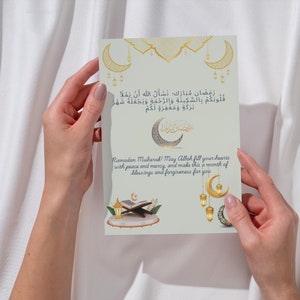 رَمَضَان مُبَارَك، نَسْأَلُ اللهَ أَنْ يَمْلَأَ
قُلُوبَكُمْ بِالسَّكِينَةِ وَالرَّحْمَةِ وَيَجْعَلَهُ شَهْرَ
بَرَكَةٍ وَمَغْفِرَةٍ لَكُمْ
Ramadan Mubarak! May Allah fill your hearts
with peace and mercy, and make this a month of
blessings and forgiveness for you